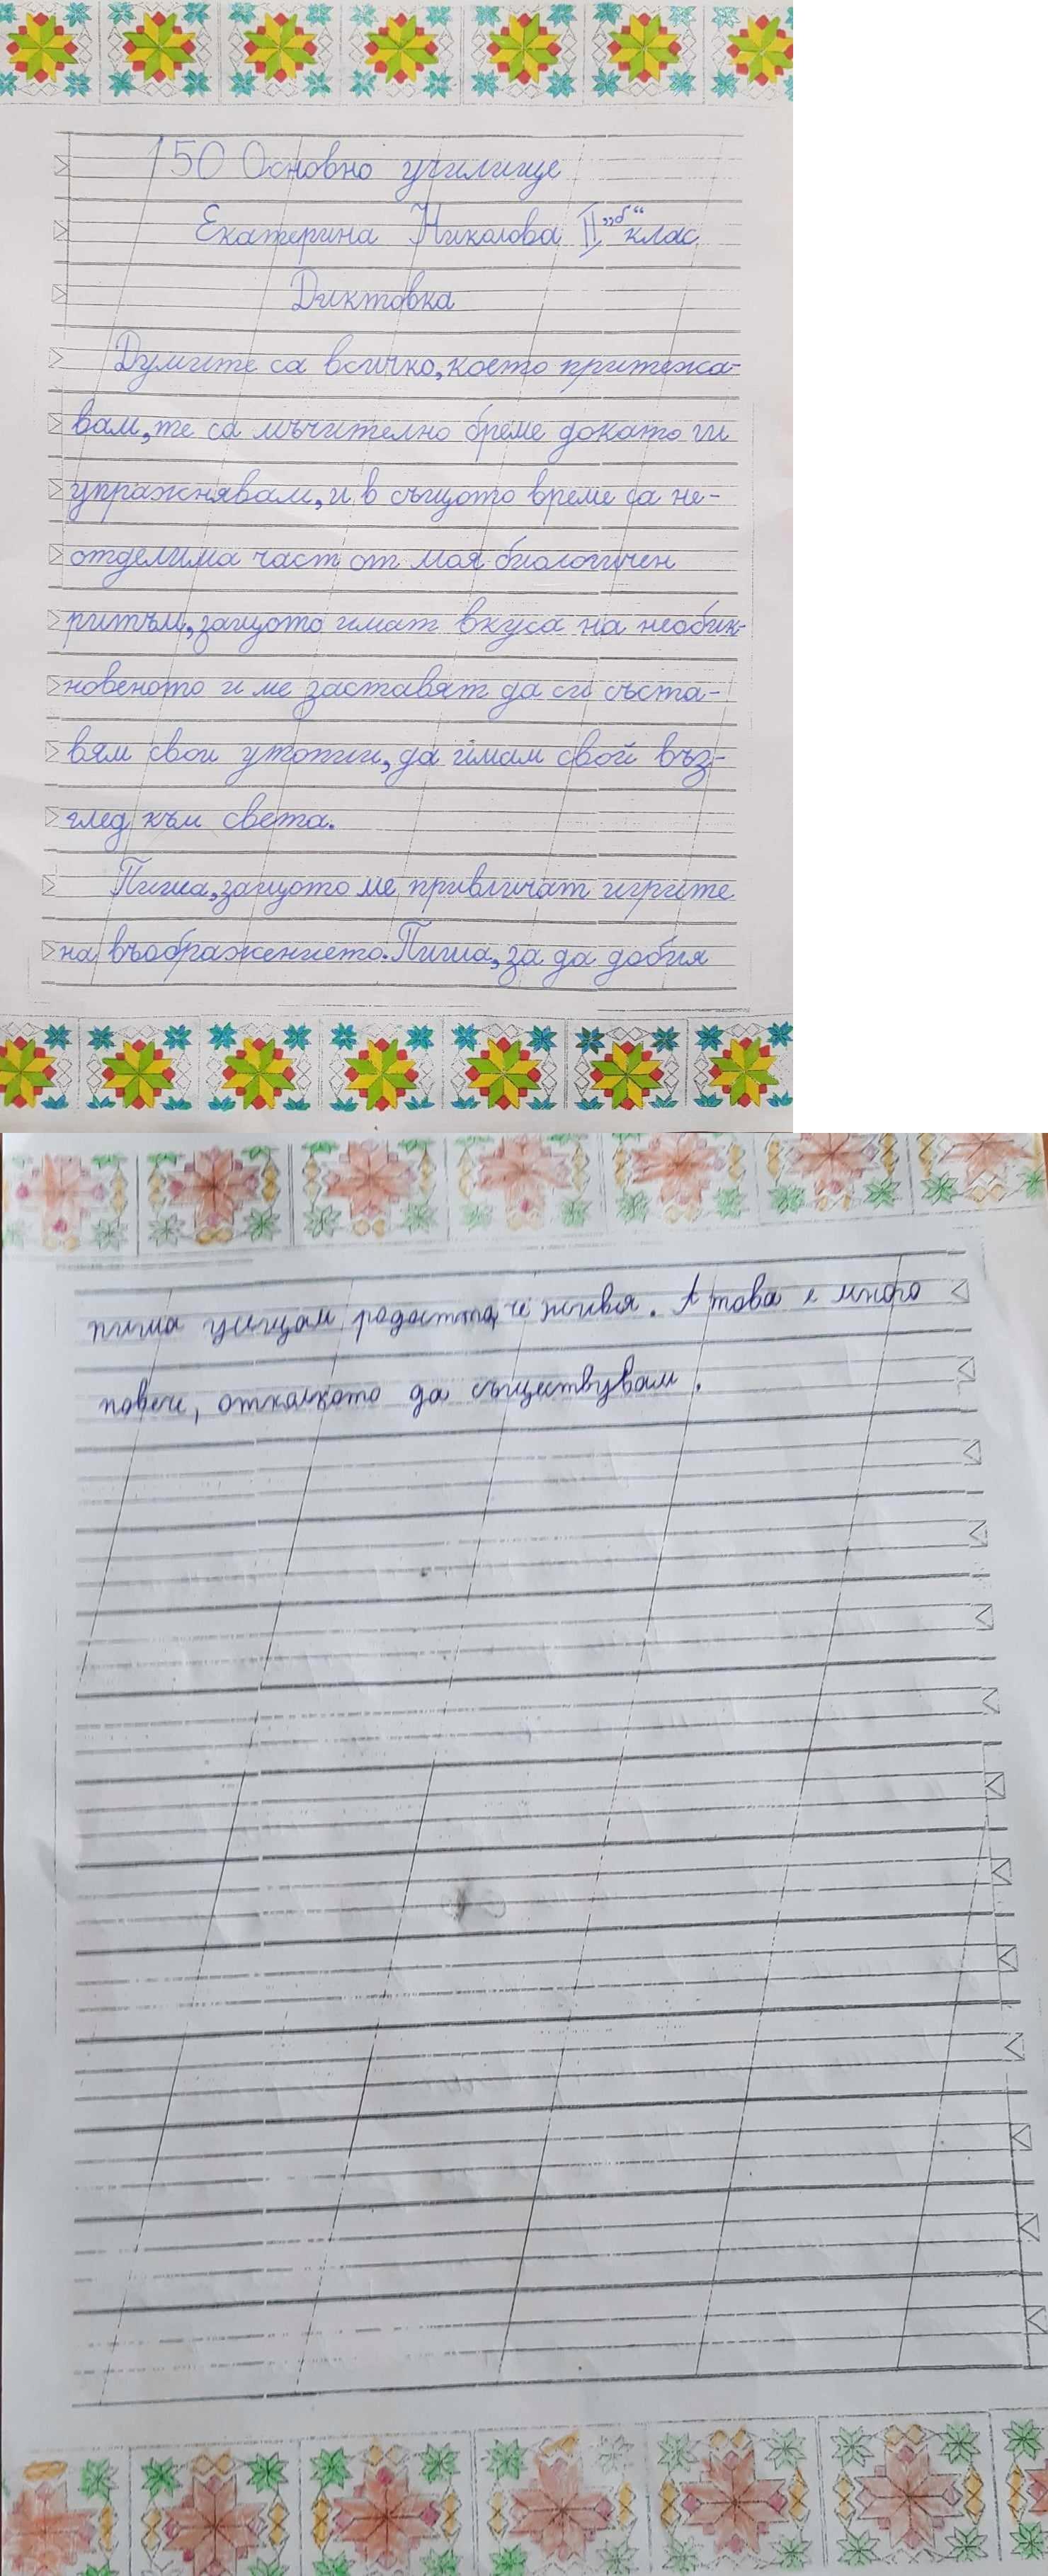 150 Основно училище
Екатерина Николова II „б“ клас
Диктовка
Думите са всичко, което притежа-
вам, те са мъчително бреме докато ги
упражнявам, и в същото време са не-
отделима част от моя биологичен
ритъм, защото имат вкуса на необик-
новеното и ме заставят да си съста-
вям свои утопии, да имам свой въз-
глед към света.
Пиша, защото ме привличат игрите
на въображението. Пиша, за да добия
пиша усещам радостта, че живея. А това е много
повече, отколкото да съществувам.